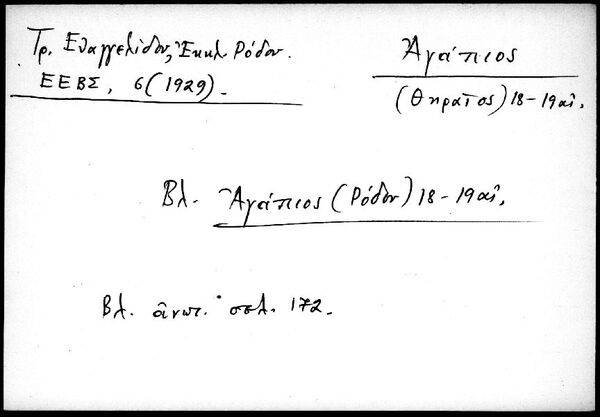 Τρ. Εὐαγγελίδου, Ἐκκλ. Ρόδου.
ΕΕΒΣ, 6(1929).
Ἀγάπιος
(Θηραῖος) 18-19 αἰ.
Βλ. Ἀγάπιος (Ρόδου) 18-19 αἰ.
Βλ. ἀνωτ. σελ. 172.